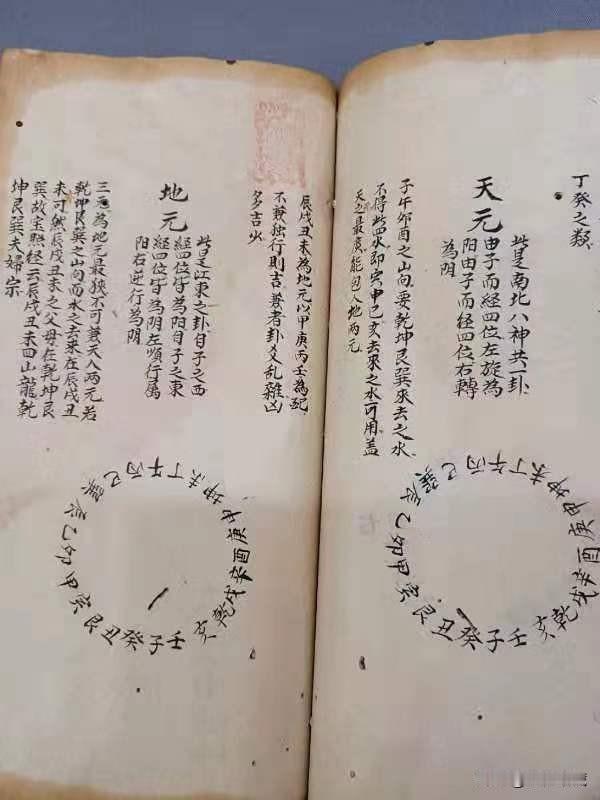 丁癸之類
天元
此是南北八神共一卦
由子而經四位左旋為
阳由子而經四位右轉
為阴
子午卯酉之山向要乾坤艮巽來去之水
不得此四水即寅申巳亥去來之水可用蓋
天之最廣能包人地两元
巽巳丙午丁未坤申庚酉辛戌乾亥壬子癸丑艮寅甲卯乙辰
辰戌丑未為地元以甲庚丙壬為配
不兼独行則吉兼者卦爻乱雜凶
多吉少
地元
此是江東之卦自子之西
經四位皆為阳自子之東
經四位皆為阴左順行属
阳右逆行為阴
三元為地元最狹不可兼天人两元若
乾坤艮巽之山向而水之去來在辰戌丑
未可然辰戌丑未之父母在乾坤艮
巽故宝照经云辰戌丑未四山龍乾
坤艮巽夫婦宗
巽巳丙午丁未坤申庚酉辛戌乾亥壬子癸丑艮寅甲卯乙辰